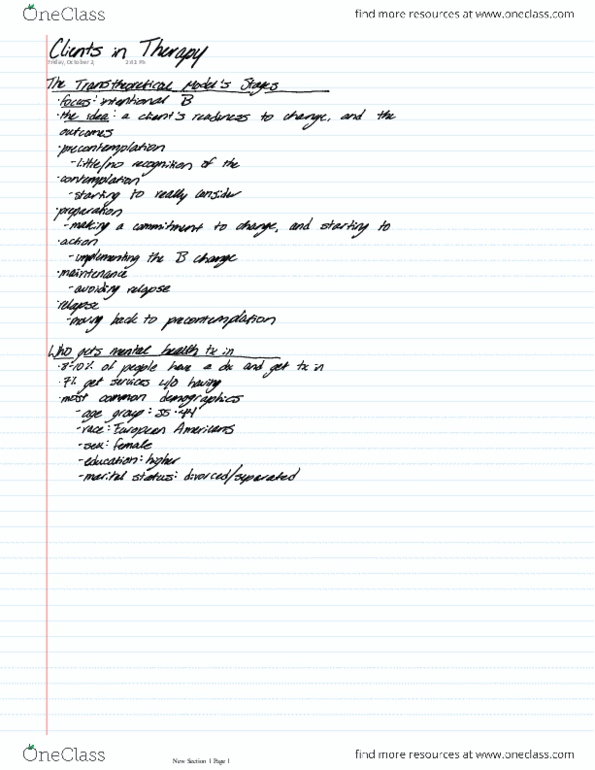 OneClass
find more resources at www.oneclass.com
Clients in Therapy
Friday, October 2, 2:02 PM
The Transtheoretical Model's Stages
·focus: intentional B
·the idea: a client's readiness to change, and the
outcomes
·precontemplation
-little/no recognition of the
·contemplation
-starting to really consider
·preparation
-making a commitment to change, and starting to
·action
-implementing the B change
·maintenance
-avoiding relapse
·relapse
-moving back to precontemplation
Who gets mental health tx in
·8-10% of people have a dx and get tx in
·7% get services w/o having
·most common demographics
-age group: 35-44
-race: European Americans
-sex: female
-education: higher
-marital status: divorced/separated
OneClass
New Section 1 Page 1
find more resources at www.oneclass.com